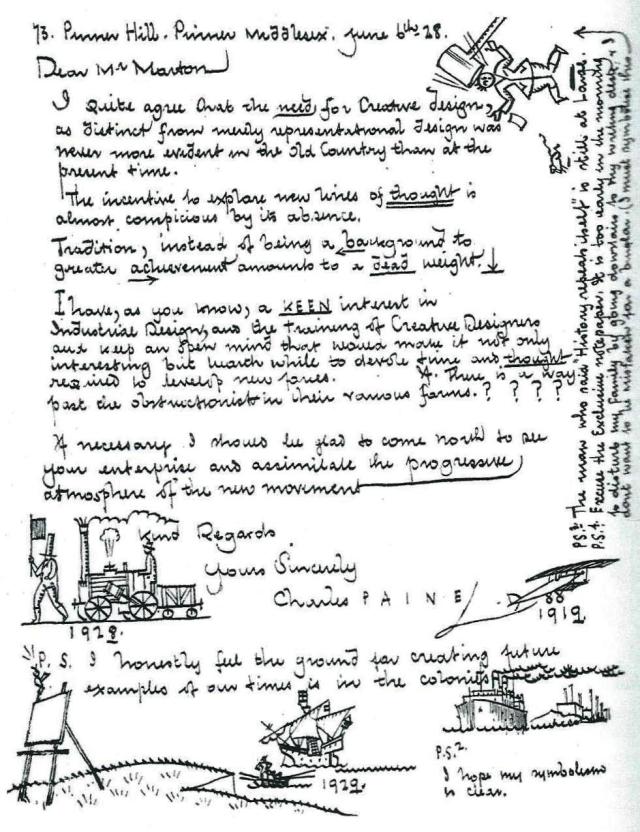 73. Pinner Hill. Pinner Middlesex. June 6th 28.
Dear Mr Marton
I Quite agree that the need for Creative design,
as distinct from merely representational design was
never more evident in the Old Country than at the
present time.
The incentive to explore new lines of thought is
almost conspicious by its absence.
Tradition, instead of being a background to
greater achievement amounts to a dead weight.
I have, as you know, a KEEN interest in
Industrial Design, and the training of Creative Designers
and keep an open mind that would make it not only
interesting but worth while to devote time and thought
required to develop new forces. If There is a way
past the obstructionists in their various forms. ? ? ? ?
If necessary I should be glad to come north to see
your enterprise and assimilate the progressive
atmosphere of the new movement
Kind Regards
Yours Sincerely
Charles PAINE
1928.
88
1919.
P.S. I honestly feel the ground for creating future
examples of our times is in the colonies
1929.
P.S.2.
I hope my symbolism
is clear.
PS.3. The man who said "History repeats itself" is still at Large.
P.S.4. Excuse the Exclusive notepaper. It is too early in the morning
to disturb my family by going downstairs to my writing desk, & I
dont want to be mistaken for a burglar. (I must symbolise this